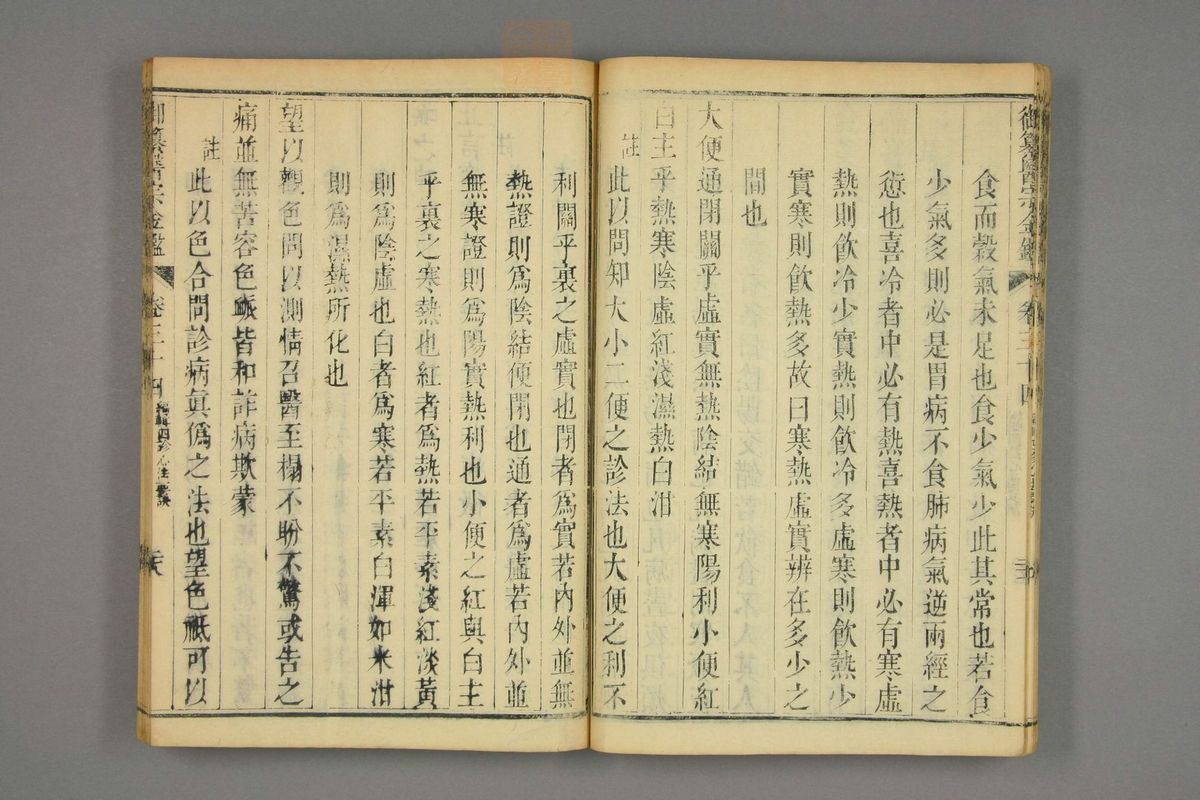 御纂醫宗金鑑 卷三十四
食而穀氣未足也食少氣少此其常也若食
少氣多則必是胃病不食肺病氣逆兩經之
愆也喜冷者中必有熱喜熱者中必有寒虛
熱則飲冷少實熱則飲冷多虛寒則飲熱少
實寒則飲熱多故曰寒熱虛實辨在多少之
間也
大便通閉關乎虛實無熱陰結無寒陽利小便紅
白主乎熱寒陰虛紅淺濕熱白泔
註 此以問知大小二便之診法也大便之利不
利關乎裏之虛實也閉者爲實若內外並無
熱證則爲陰結便閉也通者爲虛若內外並
無寒證則爲陽實熱利也小便之紅與白主
乎裏之寒熱也紅者爲熱若平素淺紅淡黃
則爲陰虛也白者爲寒若平素白渾如米泔
則爲濕熱所化也
望以觀色問以測情召醫至榻不盼不驚或告之
痛並無苦容色脈皆和詐病欺蒙
註 此以色合問診病眞僞之法也望色祇可以
御纂醫宗金鑑 卷三十四 編輯四診心法要訣 三六